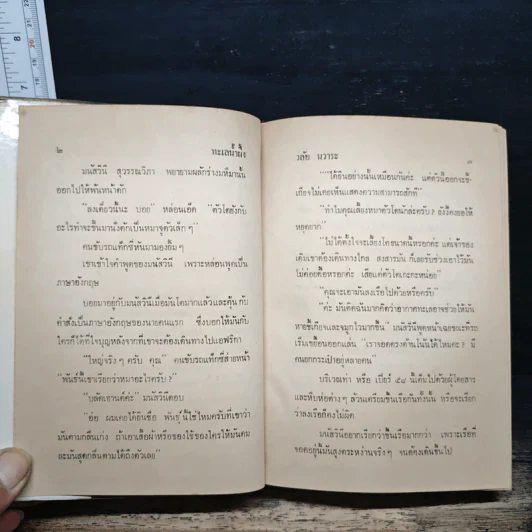 ๒ ทะเลน้ำผึ้ง
มนัสวินี สุวรรณวิภา พยายามผลักร่างมหึมานั้น
ออกไปให้พ้นหน้าตัก
"ลงเดี๋ยวนี้นะ บอย" หล่อนเอ็ด "ตัวโตยังกับ
อะไรทำจะขึ้นมานั่งตักเป็นหมาจูตัวเล็ก ๆ"
คนขับรถแท็กซี่หันมามองยิ้ม ๆ
เขาเข้าใจคำพูดของมนัสวินี เพราะหล่อนพูดเป็น
ภาษาอังกฤษ
บอยมาอยู่กับมนัสวินีเมื่อมันโตมากแล้วและคุ้นกับ
คำสั่งเป็นภาษาอังกฤษของนายคนแรก ซึ่งยกให้มันกับ
ใครก็ได้ที่ใจบุญหลังจากที่เขาจะต้องเดินทางไปแอฟริกา
"ใหญ่จริง ๆ ครับ คุณ" คนขับรถแท็กซี่ส่ายหน้า
"พันธุ์นี้เขาเรียกว่าหมาอะไรครับ?"
"บลัดเฮานด์ค่ะ" มนัสวินีตอบ
"อ้อ ผมเคยได้ยินชื่อ พันธุ์นี้ใช่ไหมครับที่เขาว่า
มันดมกลิ่นเก่ง ถ้าเอาเสื้อผ้าหรือของใช้ของใครให้มันดม
ละมันสูดกลิ่นตามได้ถึงตัวเลย"
วลัย นวาระ ๓
"ได้ยินอย่างนั้นเหมือนกันค่ะ แต่ตัวนี้ออกจะขี้
เกียจไม่เคยเห็นแสดงความสามารถสักที"
"ทำไมคุณเลี้ยงหมาตัวโตนักล่ะครับ?
"ไม่ได้ตั้งใจจะเลี้ยงโตขนาดนี้หรอกค่ะ แต่เจ้าของ
เดิมเขาต้องเดินทางไกล สงสารมัน ก็เลยรับช่วงเอาไว้มัน
ไม่ค่อยดื้อหรอกค่ะ เสียแต่ตัวโตเกะกะหน่อย"
"คุณจะเอามันลงเรือไปด้วยหรือครับ"
"ค่ะ
หาอขี้เกียจและจมูกไวมากขึ้น" มนัสวินีพูดหน้าเฉยขณะที่รถ
เริ่มเขยื้อนออกแล่น "เราจอดตรงด้านโน้นได้ไหมคะ? มี
คนยกกระเป๋าอยู่หลายคน"
บริเวณท่า หรือ เปียร์ ๕๔ นี้เต็มไปด้วยผู้โดยสาร
และหีบห่อต่าง ๆ ล้วนเตรียมขึ้นเรือกันทั้งนั้น หรือจะเรียก
ว่าลงเรือก็คงไม่ผิด
มนัสวินีอยากเรียกว่าขึ้นเรือมากกว่า เพราะเรือที่
จอดอยู่นี้มันสูงตระหง่านจริง ๆ จนต้องเดินขึ้นไป